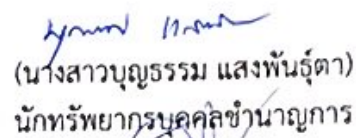 (นางสาวบุญธรรม แสงพันธุ์ตา)
นักทรัพยากรบุคคลชำนาญการ